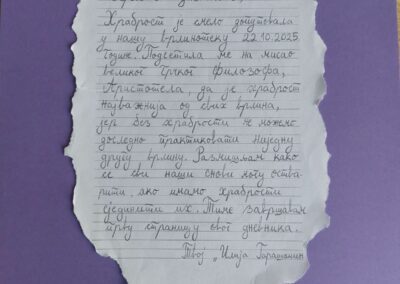 Храброст је смело допутовала
у нашу врлинотеку 22.10.2025.
године. Подсетила ме на мисао
великог грчког филозофа,
Аристотела, да је храброст
најважнија од свих врлина,
јер без храбрости не можемо
доследно практиковати ниједну
другу врлину. Размишљам како
се сви наши снови могу оства
рити, ако имамо храбрости
следити их. Тиме завршавам
прву страницу свог дневника.
Твој „Илија Гарашанин